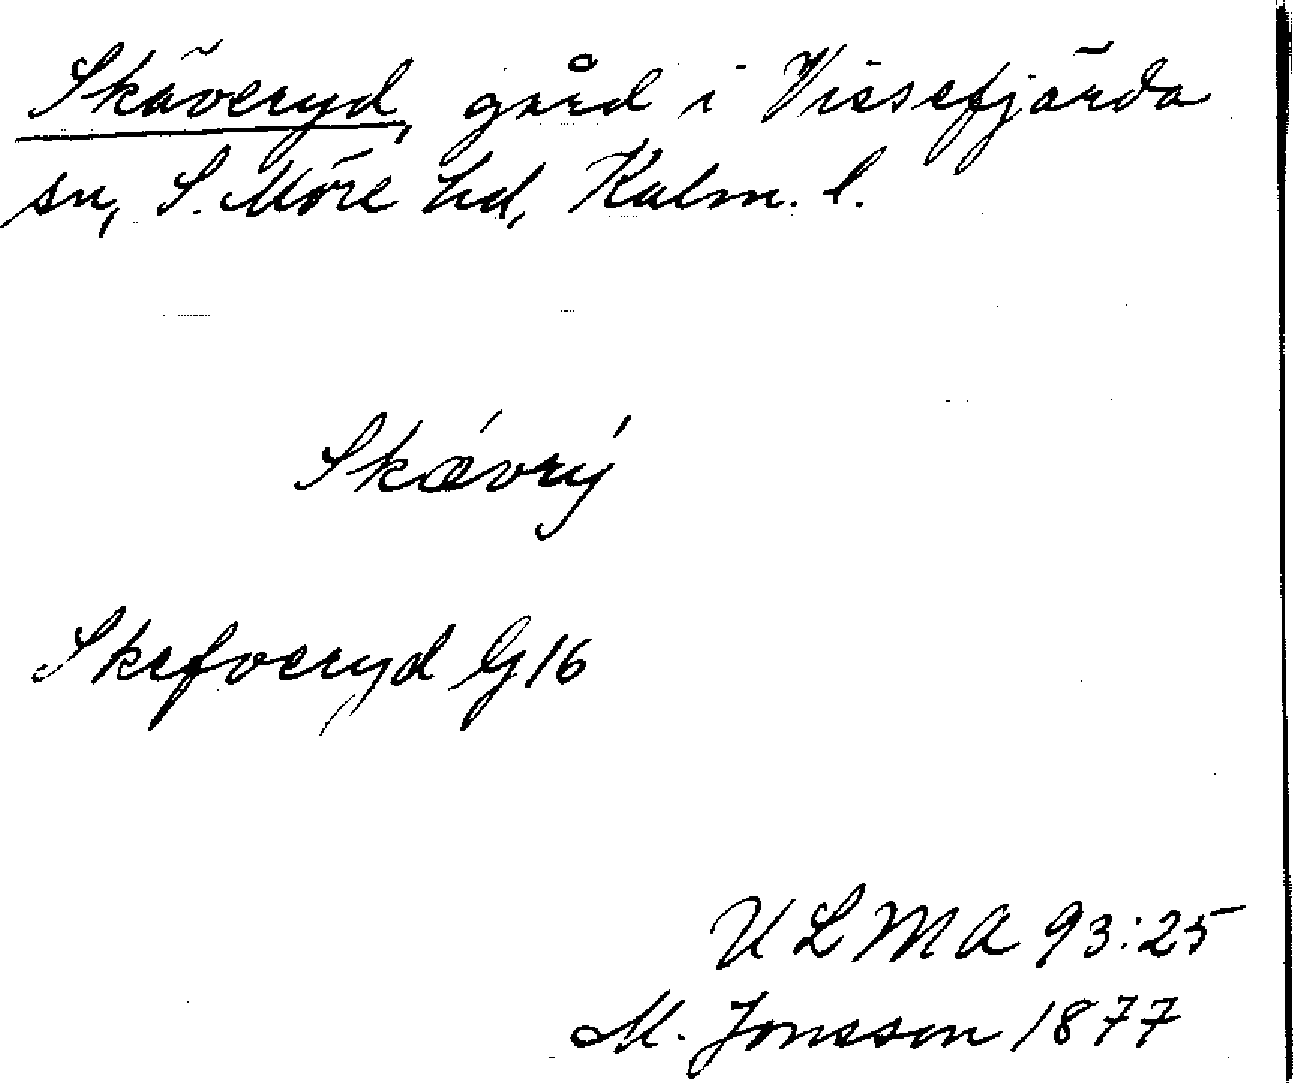 Skäveryd, gård i Vissefjärda
sn, S. Möre hd, Kalm. l.
Skǽvrý
Skefveryd G16
ULMA 93:25
M. Jonsson 1877